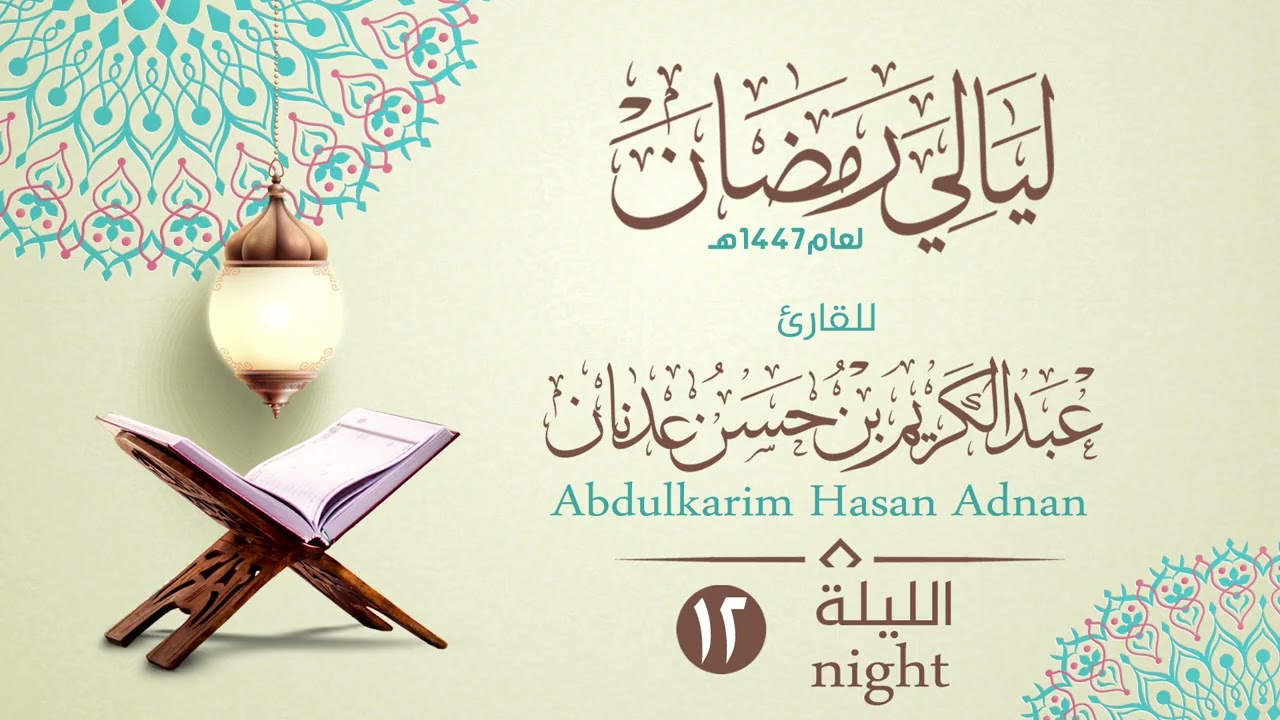 لَيَالِي رَمَضَان
لعام1447هـ
للقارئ
عَبْدالكَرِيْم بِنْ حَسَنْ عدنان
Abdulkarim Hasan Adnan
الليلة ١٢
night